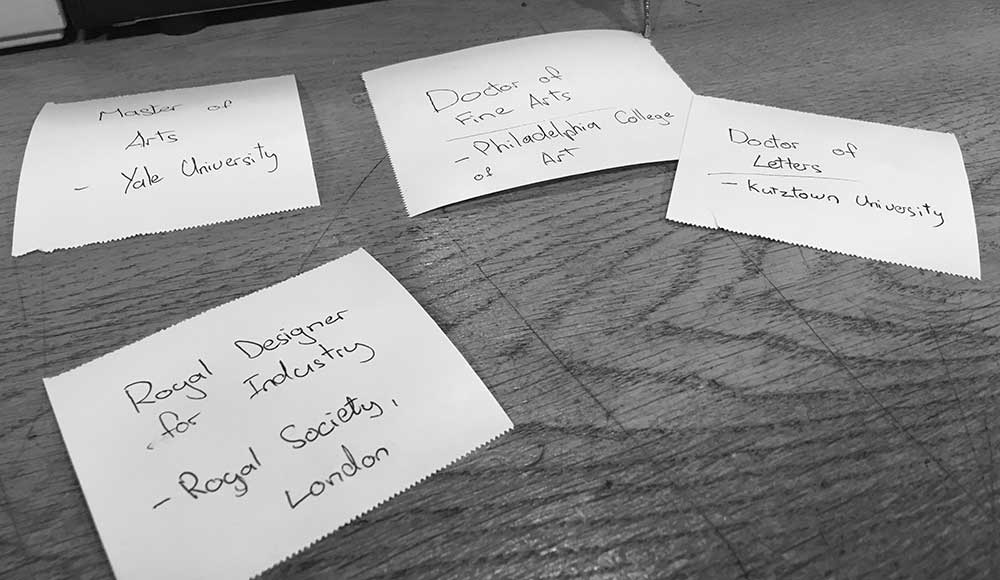 Master of
Arts
- Yale University
Doctor of
Fine Arts
- Philadelphia College
of Art
Doctor of
Letters
- Kutztown University
Royal Designer
for Industry
- Royal Society,
London